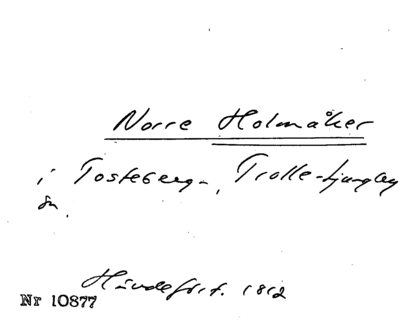 Norre Holmåker
i Tosteberga, Trolle-Ljungby
sn.
Häradsfört. 1812
Nr 10877